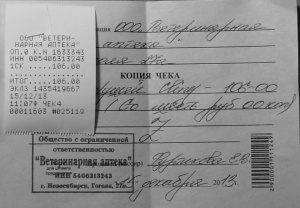 ООО "ВЕТЕРИ-
НАРНАЯ АПТЕКА"
ОП.0 К.Н 1633343
ИНН 005406313243
1СК ...106.00
ИТОГ....106.00
ЭКЛЗ 1435419667
15/12/13
11:07 ЧЕК4
00011603 #025119
ООО "Ветеринарная
аптека"
КОПИЯ ЧЕКА
106-00
(Сто шесть руб 00 коп)
Z
Общество с ограниченной
ответственностью
"Ветеринарная аптека"
ИНН 5406313243
г. Новосибирск, Гоголя,
15 декабря 2013г.